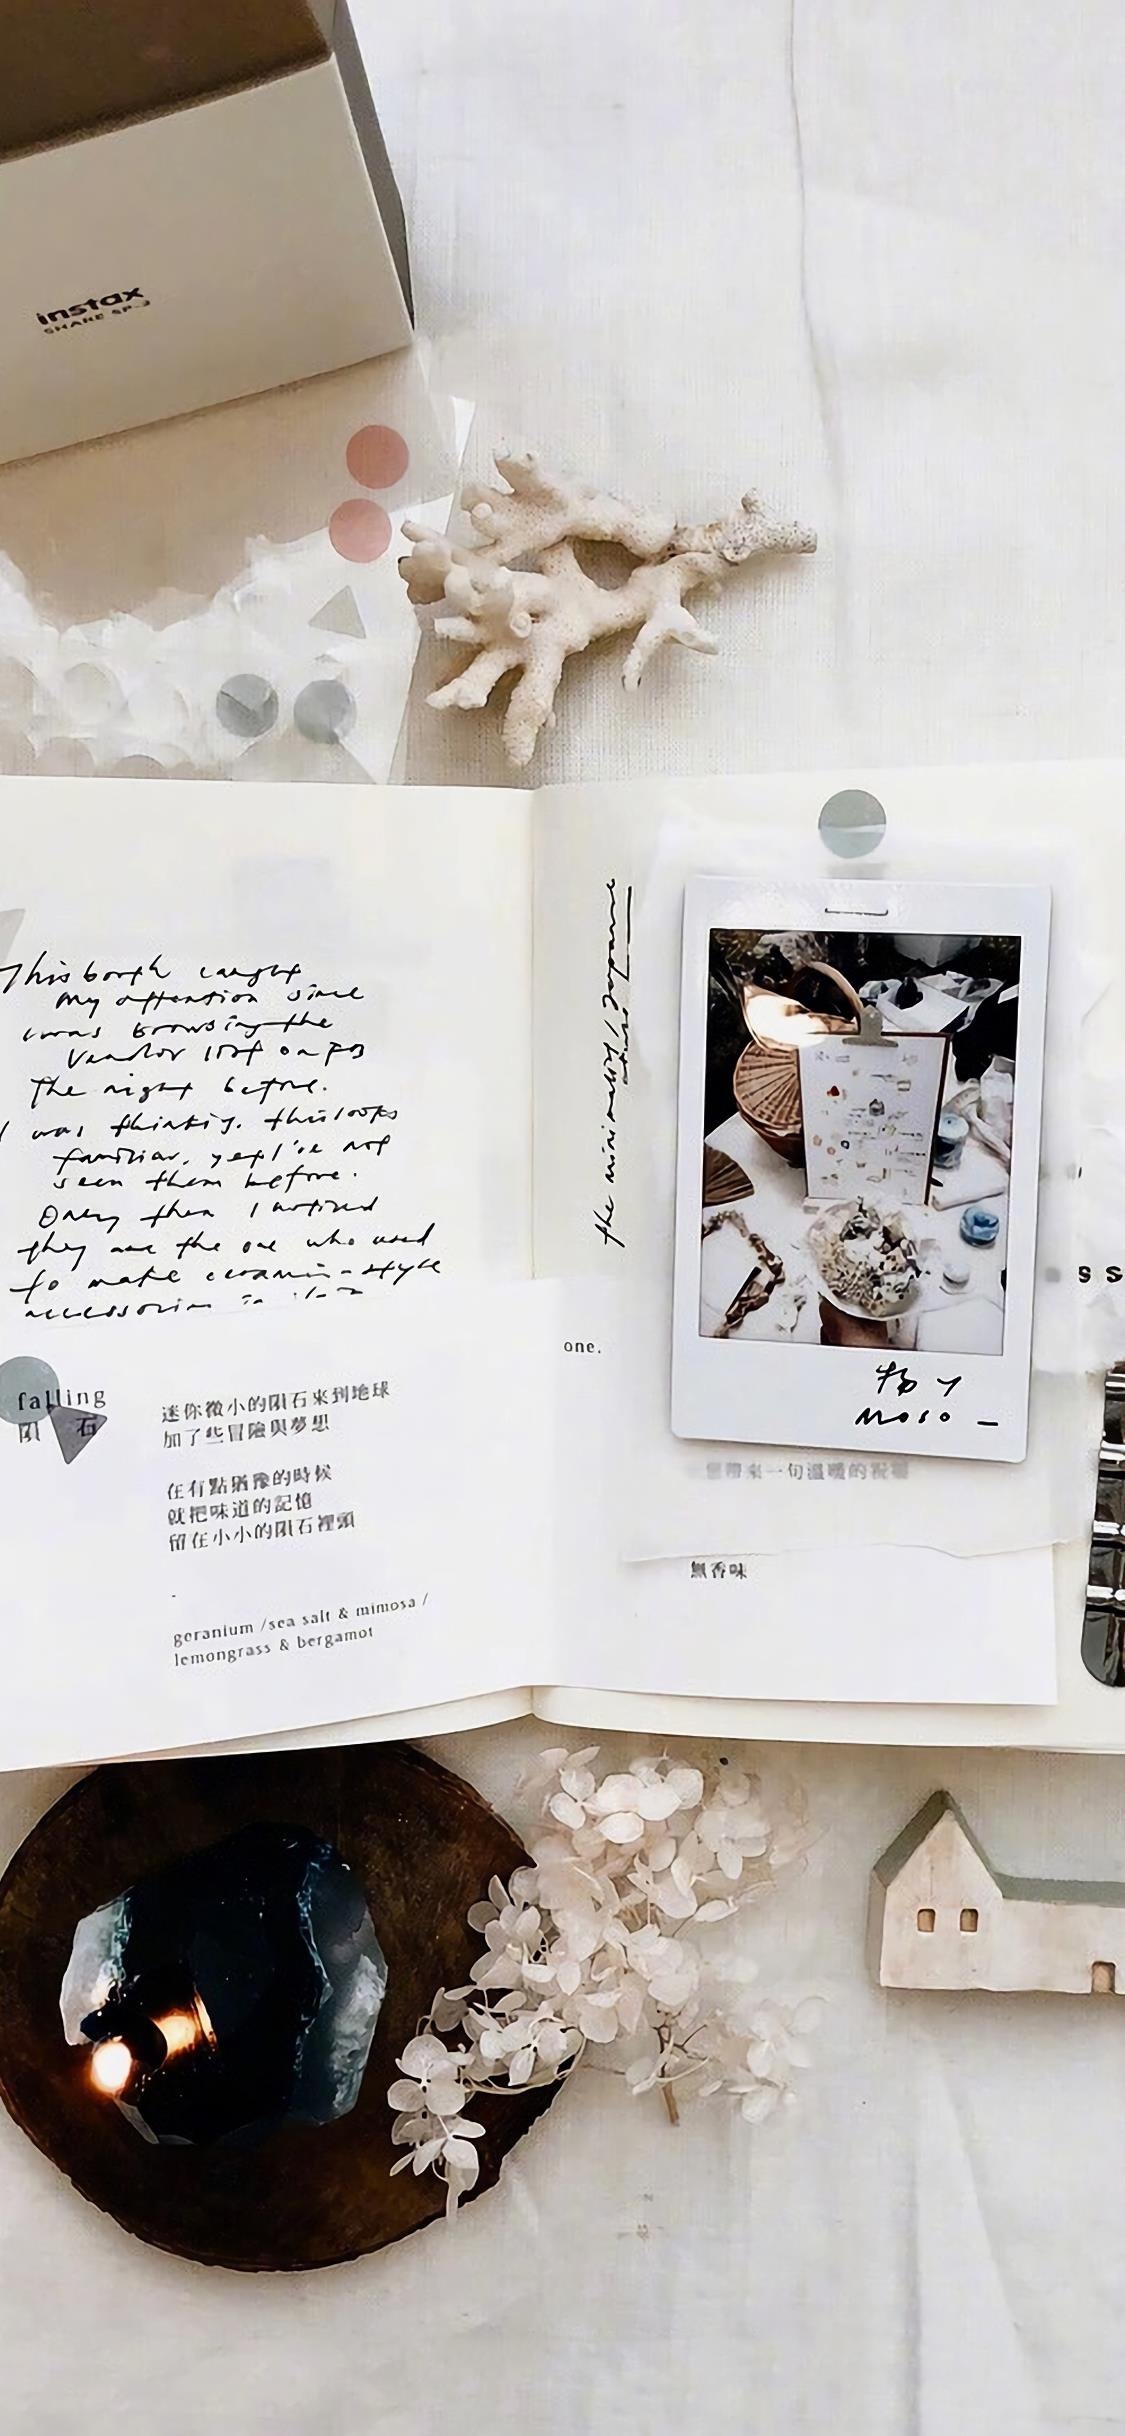 instax
SHARE SP-2
This booth caught
my attention since
I was browsing the
vendor list on FB
the night before.
I was thinking, this looks
familiar, yet I've not
seen them before.
Only then I noticed
they are the one who used
to make ceramic-style
accessories in
falling
隕 石
迷你微小的隕石來到地球
加了些冒險與夢想
在有點猶豫的時候
就把味道的記憶
留在小小的隕石裡頭
geranium /sea salt & mimosa /
lemongrass & bergamot
the minimalist / Japanese
one.
物 y
MOSO
帶來一句溫暖的祝福
無香味
s s